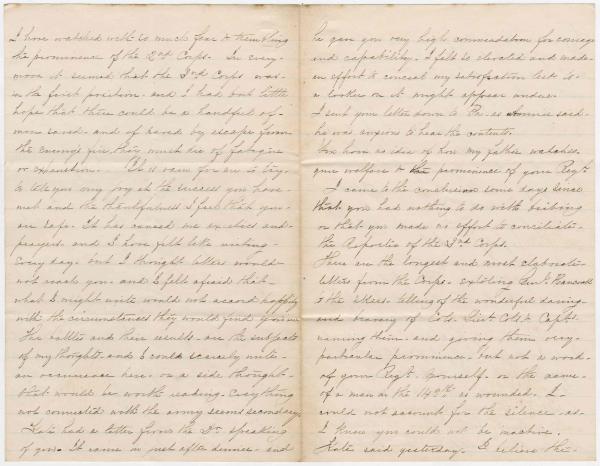 I have watched with so much fear & trembling
the prominence of the 2nd Corps. In every
move it seemed that the 2nd Corps was
in the first position. and I had but little
hope that there could be a handful of
men saved. and if saved by escape from
the enemys fire, they must die of fatigue
or exhaustion. It is vain for me to try
to tell you my joy at the success you have
met and the thankfulness I feel that you
are safe. It has caused me
prayers. and I have felt like writing
every day. but I thought letters would
not reach you. and I felt afraid that
what I might write would not accord happily
with the circumstances they would find you in
The battles and their results. are the subjects
of my thought. and I could scarcely write
an occurrence here. or a side thought
that would be worth reading. Everything
not connected with the army seems secondary.
Kate had a letter from the Dr. speaking
of you. It came in just after dinner. and
he gave you very high commendation for courage
and capability. I felt so elevated and made
an effort to conceal my satisfaction lest to
a looker on it might appear undue.
I sent your letter down to Pa. as Annie said
he was anxious to hear the contents.
You have no idea of how my father watches
your welfare & the prominence of your Regt.
I came to the conclusion some days since
that you had nothing to do with bribing
or that you made no effort to conciliate
the Reporter of the 2nd Corps.
There are the longest and most elaborate
letters from the Corps. extolling Genl. Hancock
& the others. telling of the wonderful daring
and bravery of Cols. Lieut Cols & Capts.
naming them. and giving them very
particular prominence. but not a word
of your Regt. yourself. or the name
of a man in the 145th as wounded. I
could not account for the silence. as
I knew you could not be inactive.
Kate said yesterday. I believe the